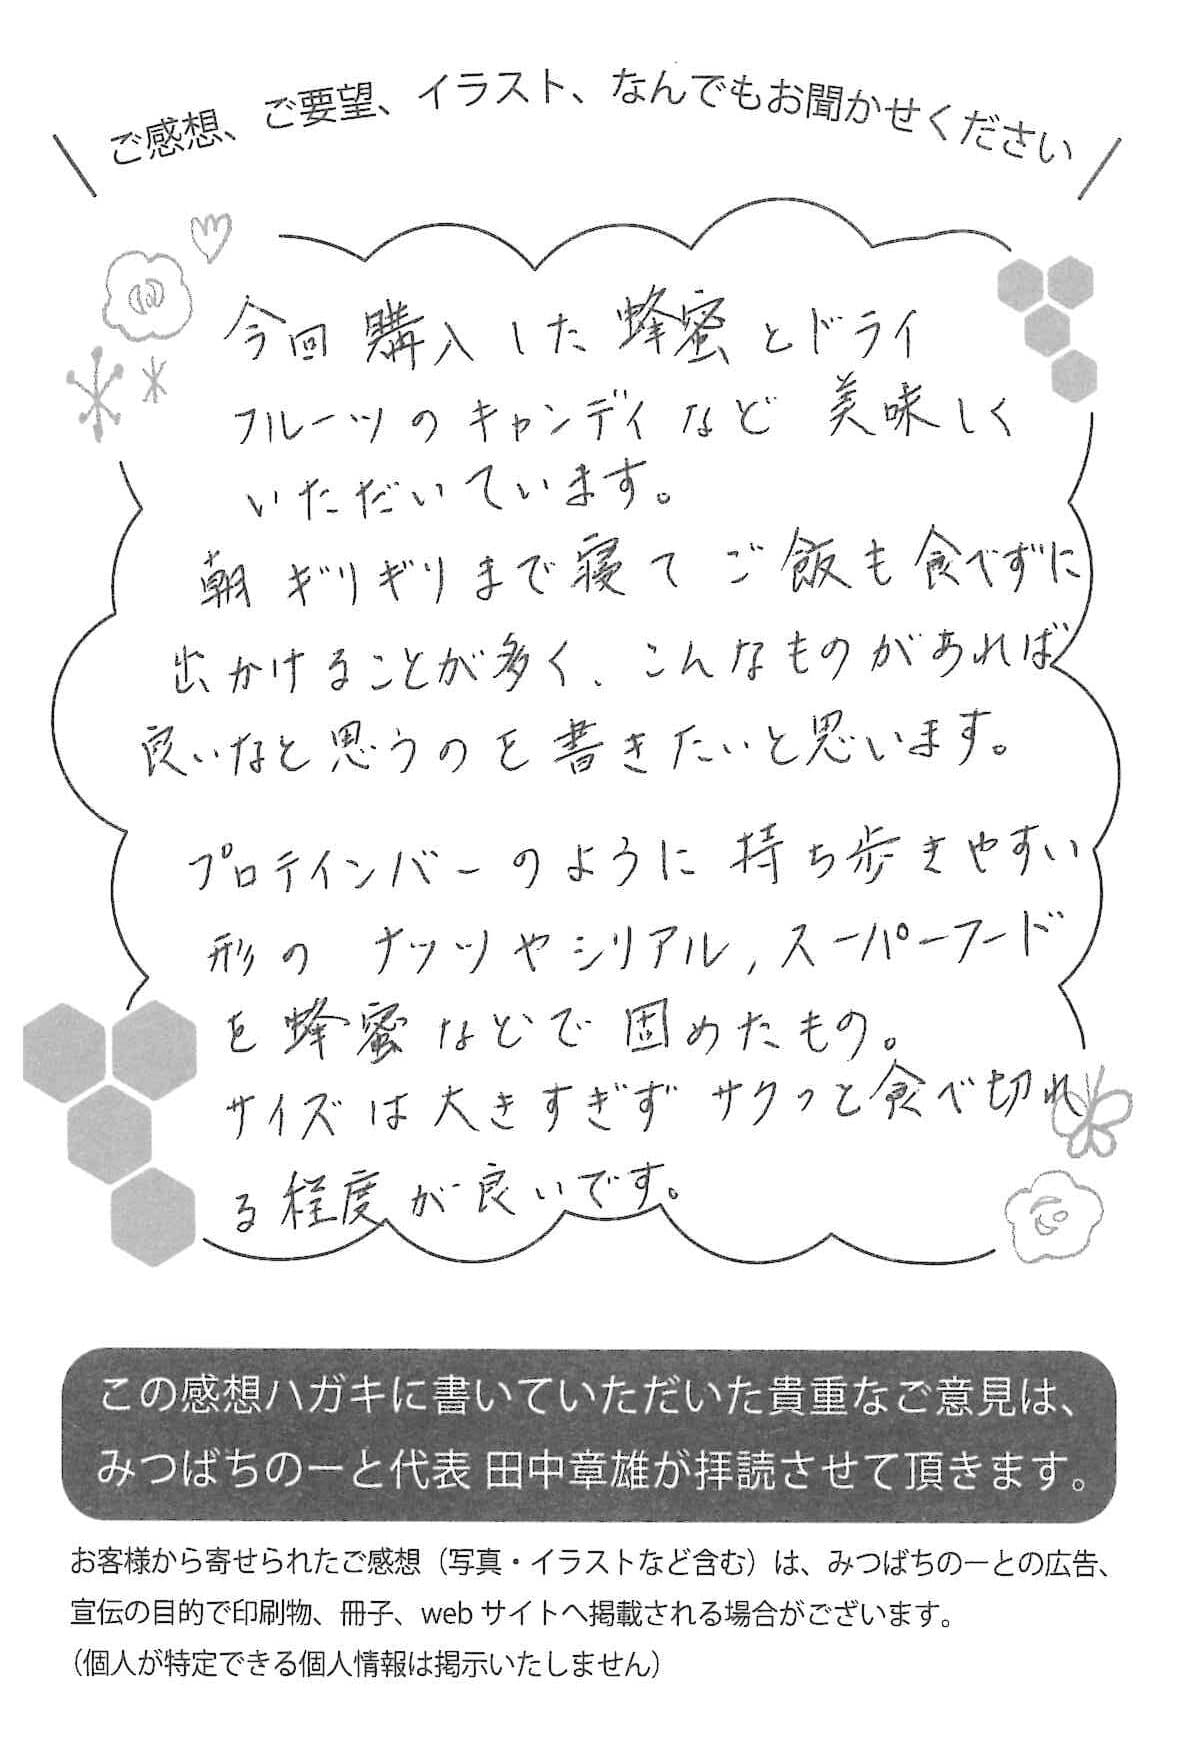 ご感想、ご要望、イラスト、なんでもお聞かせください
今回 購入した 蜂蜜 とドライ
フルーツの キャンディ など 美味しく
いただいています。
朝 ギリギリまで 寝て ご飯も 食べずに
出かけることが多く、こんなものがあれば
良いなと思うのを書きたいと思います。
プロテインバーのように 持ち歩きやすい
形の ナッツやシリアル, スーパーフード
を 蜂蜜 などで 固めたもの。
サイズは大きすぎず サクっと食べ切れ
る程度が良いです。
この感想ハガキに書いていただいた貴重なご意見は、
みつばちのーと代表 田中章雄が拝読させて頂きます。
お客様から寄せられたご感想（写真・イラストなど含む）は、みつばちのーとの広告、
宣伝の目的で印刷物、冊子、web サイトへ掲載される場合がございます。
（個人が特定できる個人情報は掲示いたしません）